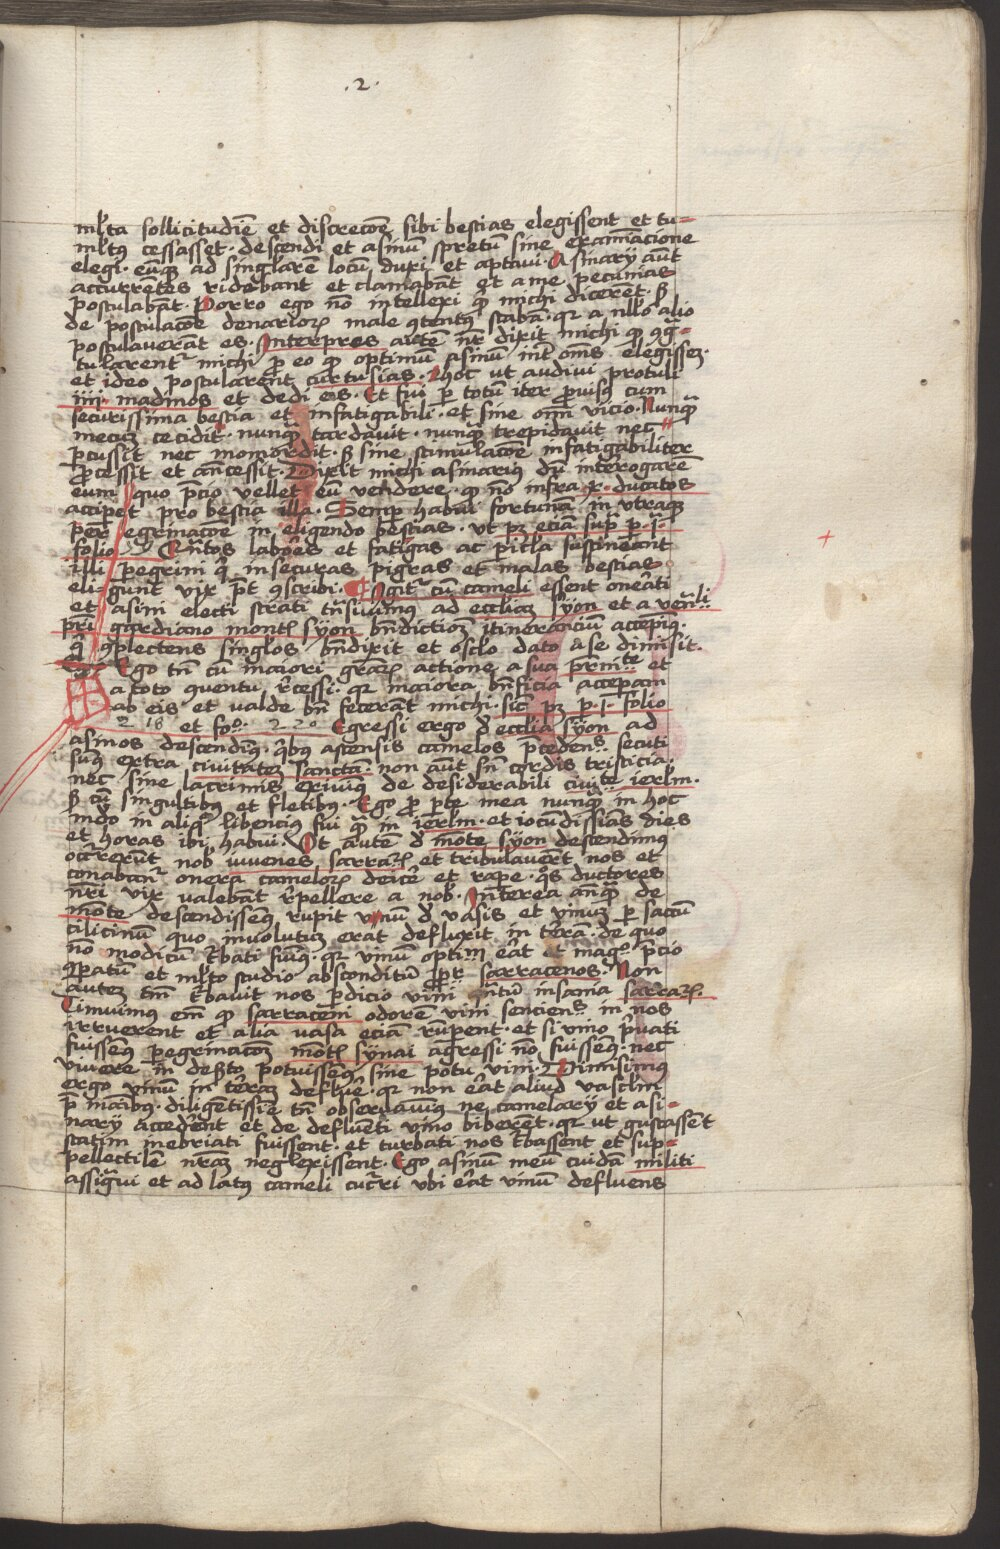 .2.
ml̅ta sollicitudīe et discrecōe sibi bestias elegissent et tu=
ml̅tꝰ cessasset · descendi et asinū spretū sine examīacione
elegi · eūqꝫ ad singl̅arē locū duxi et aptavi · Asinarÿ aūt
accurrētes ridebant et clamabāt et a me pecunias
postulabāt · Porro ego nō intellexi q̄ michi dicerēt · sꝫ
de postulacōe denarioꝝ male ꝯtentꝰ stabā · qꝛ a nll̅o alio
postulaverāt es · Interpres autē nr̄ dixit michi ꝙ ꝯgͣ=
tularent᷑ michi ꝑ eo ꝙ optimū asinū int̅ om̄s elegissē ·
et ideo postularent curtusias · Hoc ut audivi protuli
iiij madinos et dedi eis · Et fui ꝑ totū iter ꝓvisꝰ cum
securissima bestia et infatigabili · et sine om̄i vicio · Nunqͣ
mecuꝫ cecidit · nunqͣ tardavit · nunqͣ trepidavit nec
ꝑcussit nec momordit · sꝫ sine stimulacōe infatigabiliter
ꝓcessit et an̄cessit · Dixit michi asinariꝰ dū int̅rogarē
eum quo p̄cio vellet eū vendere · ꝙ nō infra x · ducatos
acciꝑet pro bestia illa · Semꝑ habui fortunā in utraqꝫ
peregrinacōe in eligendo bestias · ut pꝫ eciā sup̄ p · i ·
folio Cūctos labōres et fatigas ac pericl̅a sustineāt
illi peregrini q̄ insecuras pigras et malas bestias
eligunt vix p̄t ꝯscribi · Igit᷑ cū cameli essent onerati
et asini electi strati tn̄sivimus ad eccl̅iaꝫ Sÿon et a ven̄ li
pri gardiano montꝭ Sÿon bn̄dictionē itinerancium accepimꝰ ·
q̄ ꝯplectens singlos bn̄dixit et oscl̅o dato a se dimisit ·
Ego tn̄ cū maiori gr̅aꝝ actione a sua pr̅nite et
a toto ꝯventu r̅cessi · qꝛ maiora bn̄ficia accepam
ab eis et valde bn̄ fecerāt michi · sic̄ pꝫ p · i · folio
218 et foͦ · 220 Egressi ergo d̄ eccl̅ia Sÿon ad
asinos descendimꝰ · q̄bꝰ ascensis camelos p̄cedentes secuti
sumꝰ extra civitateꝫ sanctā · non aūt sn̄ cordis tristicia
nec sine lacrimis exivimꝰ de desiderabili civite ierl̅m ·
sꝫ cū singultibus et fletibus · Ego ꝓ ꝑte mea nunqͣ in hoc
mdo in aliqͦ libencius fui qͣ in ierl̅m · et iocūdissias dies
et horas ibi habui · Ut autē d̄ mōte Sÿon descendimus
occurrerūt nob iuvenes sarraꝝ et tribulaverūt nos et
conabant᷑ onera cameloꝝ deicē et rape · q̄s ductores
nr̄i vix valebāt r̅pellere a nob · Interea anqͣ de
mōte descendissemꝰ rupit unū d̄ vasis et vinuꝫ ꝑ saccū
cilicinū quo involutuꝫ erat defluxit in t̅ra · de quo
nō modicū t̅bati fuimꝰ · qꝛ vinū optiᷠ erat et magͦ p̄cio
ꝯparatū et ml̅to studio absconditū ꝓpt̅ sarracenos · Non
auteꝫ tm̄ t̅bavit nos ꝑdicio vini qn̄tū insania sarraꝝ ·
Timuimus em̄ ꝙ sarraceni odorē vini sencientes in nos
irruerent et alia vasa eciā rūpent · et si vino p̅vati
fuissemꝰ peregrinacōꝫ mōtꝭ sÿnai agressi nō fuissemꝰ · nec
vivere in desto potuissemꝰ sine potu vini · Dimisimus
ergo vinū in terraꝫ defluē · qꝛ non erat aliud vascl̅m
p̄ manibus · diligentissīe tn̄ observavimꝰ ne camelarÿ et asi=
narÿ accederēt et de defluēti vino biberēt · qꝛ ut gustassēt
statim inebriati fuissent · et turbati nos t̅bassent et sup=
pellectilē nr̅aꝫ neglexissent · Ego asinū meū cuidā militi
assignavi et ad latꝰ cameli cucurri ubi erat vinū defluens